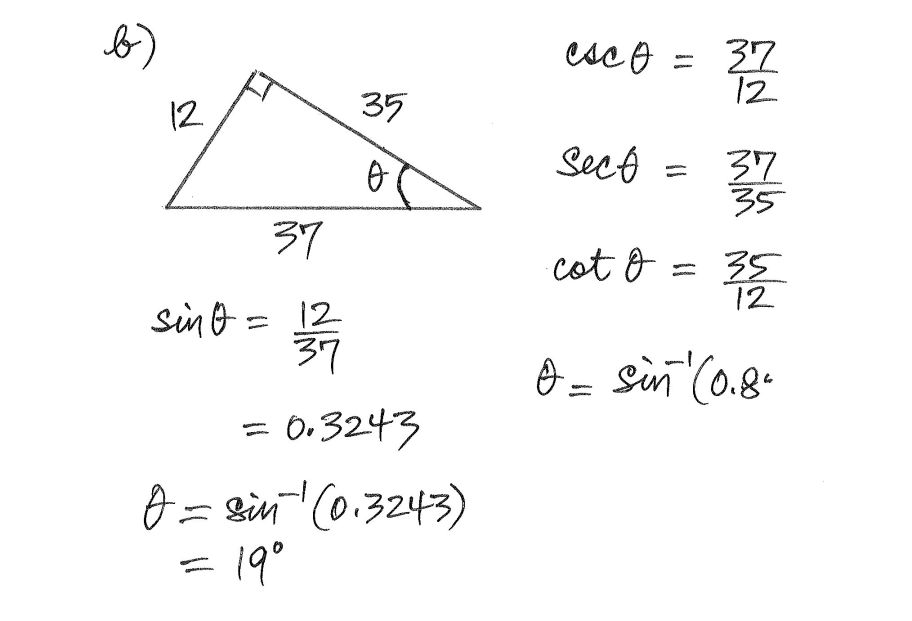 b)
12
35
θ
37
sinθ = 12/37
= 0.3243
θ = sin⁻¹(0.3243)
= 19°
cscθ = 37/12
Secθ = 37/35
cot θ = 35/12
θ = sin⁻¹(0.8